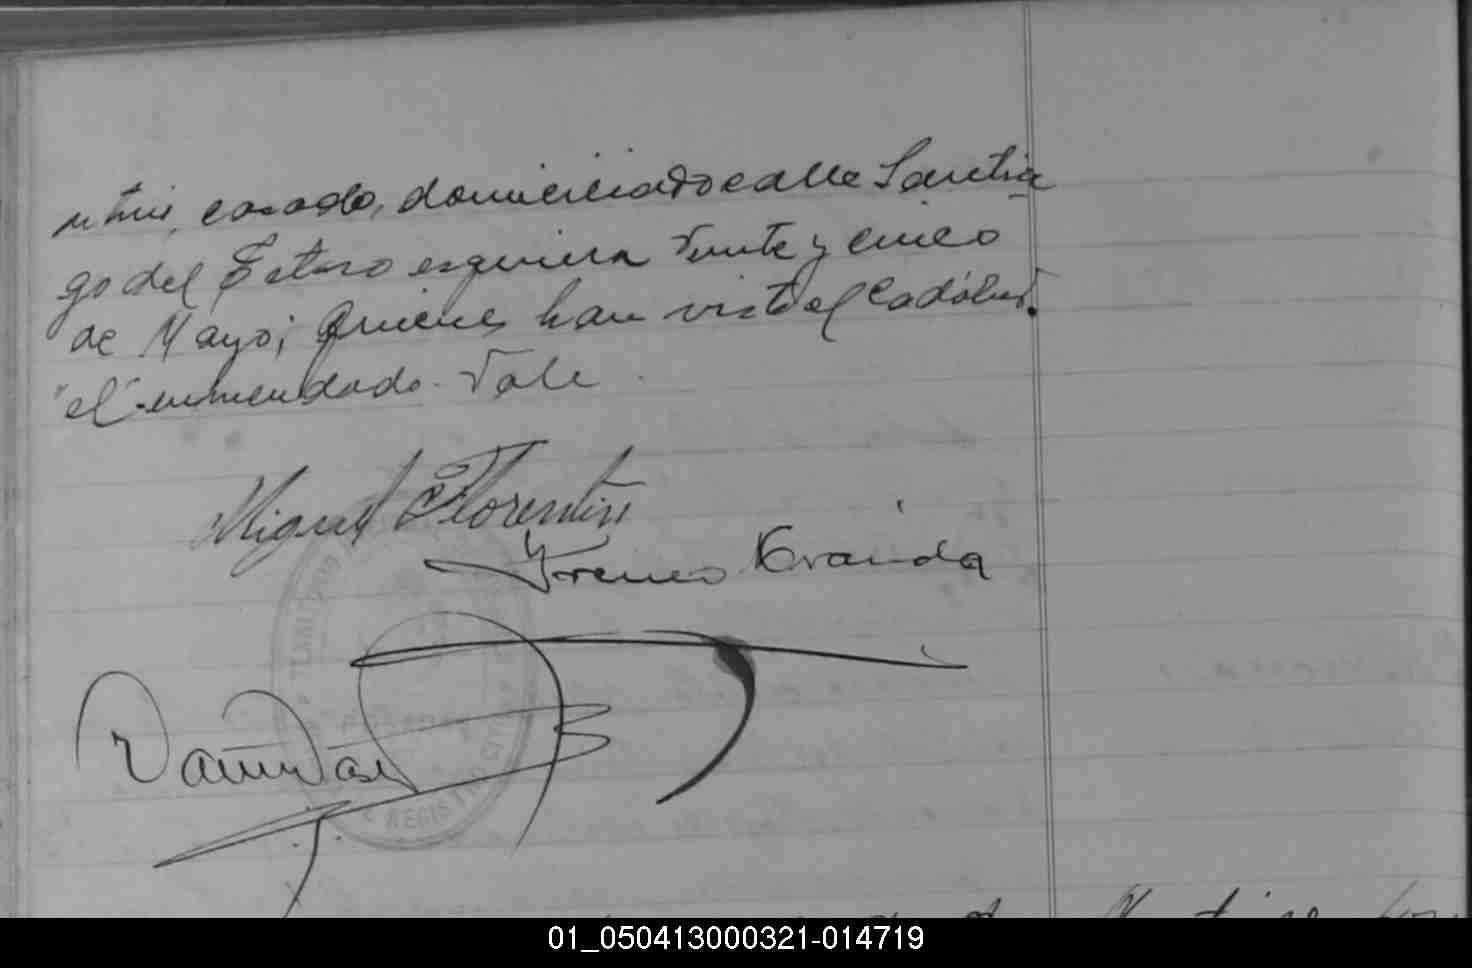 casado, domiciliado calle Santia
go del Estero esquina Veinte y cinco
de Mayo; Quienes han visto el cadáver.
"el" enmendado. Vale
Miguel Florentin
Ireneo Aranda
REGISTRO CIVIL
01_050413000321-014719